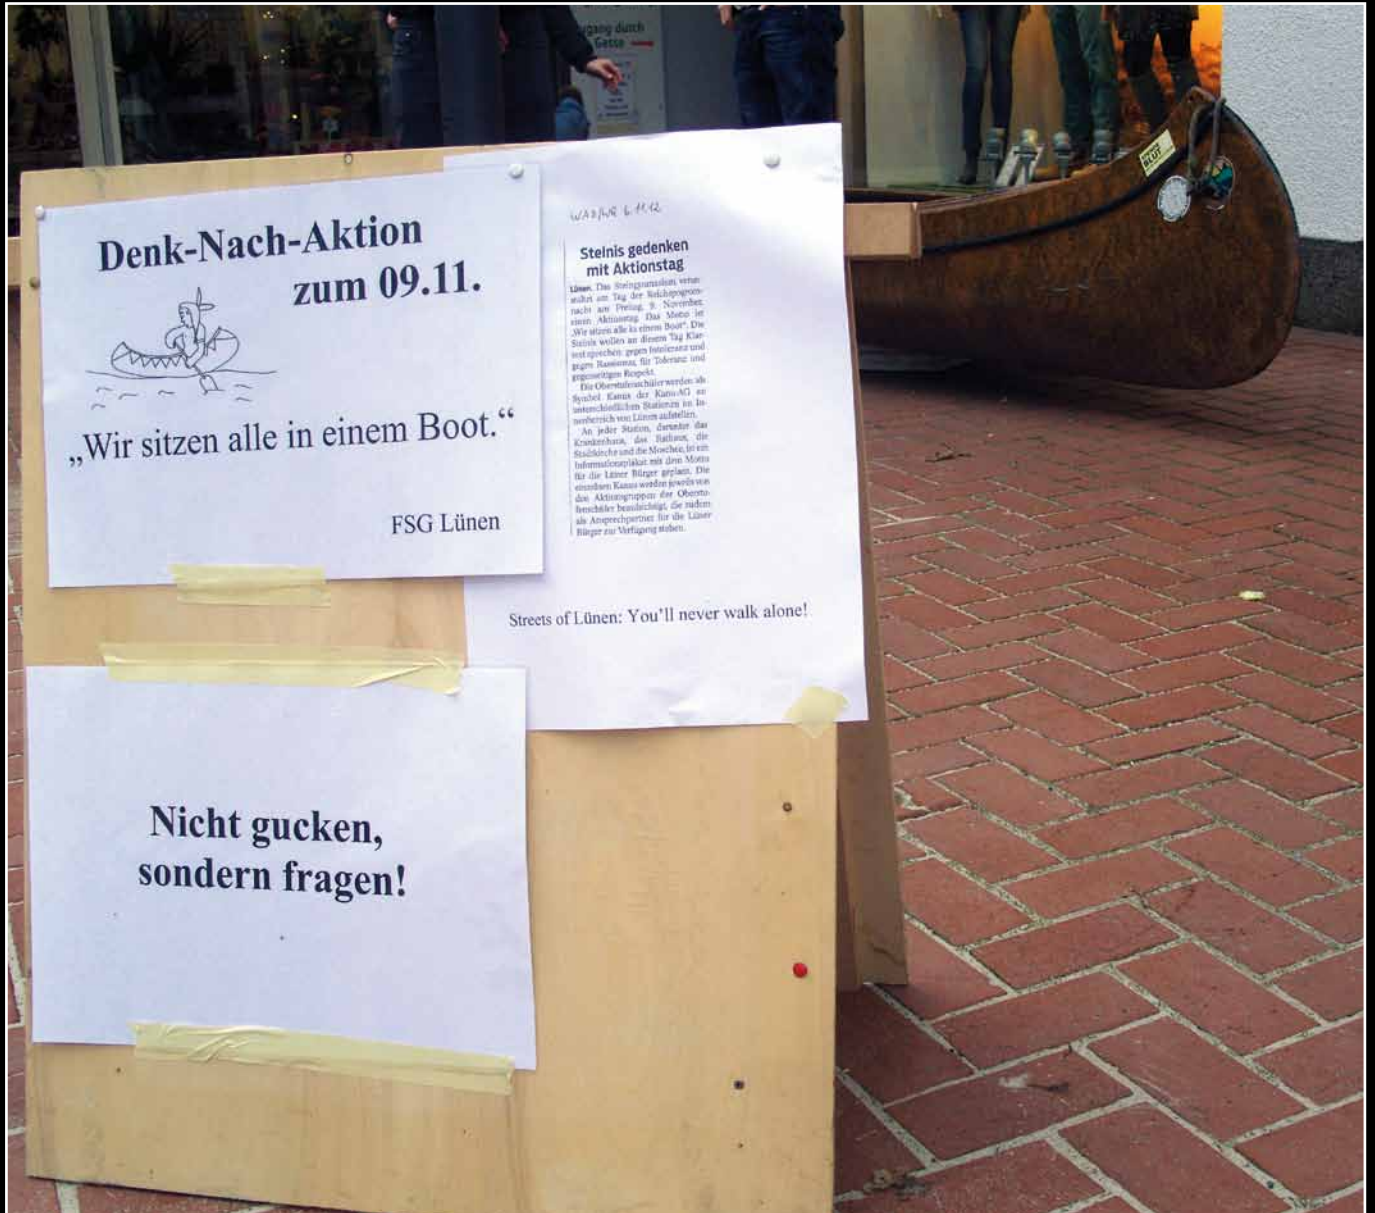 gang durch
Gasse
BLUT
Denk-Nach-Aktion
zum 09.11.
„Wir sitzen alle in einem Boot.“
FSG Lünen
WAZ/WR 6.11.12
Steinis gedenken
mit Aktionstag
Lünen. Das Steingymnasium veran-
staltet am Tag der Reichspogrom-
nacht am Freitag, 9. November,
einen Aktionstag. Das Motto ist
„Wir sitzen alle in einem Boot“. Die
Steinis wollen an diesem Tag Klar-
text sprechen: gegen Intoleranz und
gegen Rassismus, für Toleranz und
gegenseitigen Respekt.
Die Oberstufenschüler werden als
Symbol Kanus der Kanu-AG an
unterschiedlichen Stationen im In-
nenbereich von Lünen aufstellen.
An jeder Station, darunter das
Krankenhaus, das Rathaus, die
Stadtkirche und die Moschee, ist ein
Informationsplakat mit dem Motto
für die Lüner Bürger geplant. Die
einzelnen Kanus werden jeweils von
den Aktionsgruppen der Obersta-
fenschüler beaufsichtigt, die zudem
als Ansprechpartner für die Lüner
Bürger zur Verfügung stehen.
Streets of Lünen: You'll never walk alone!
Nicht gucken,
sondern fragen!